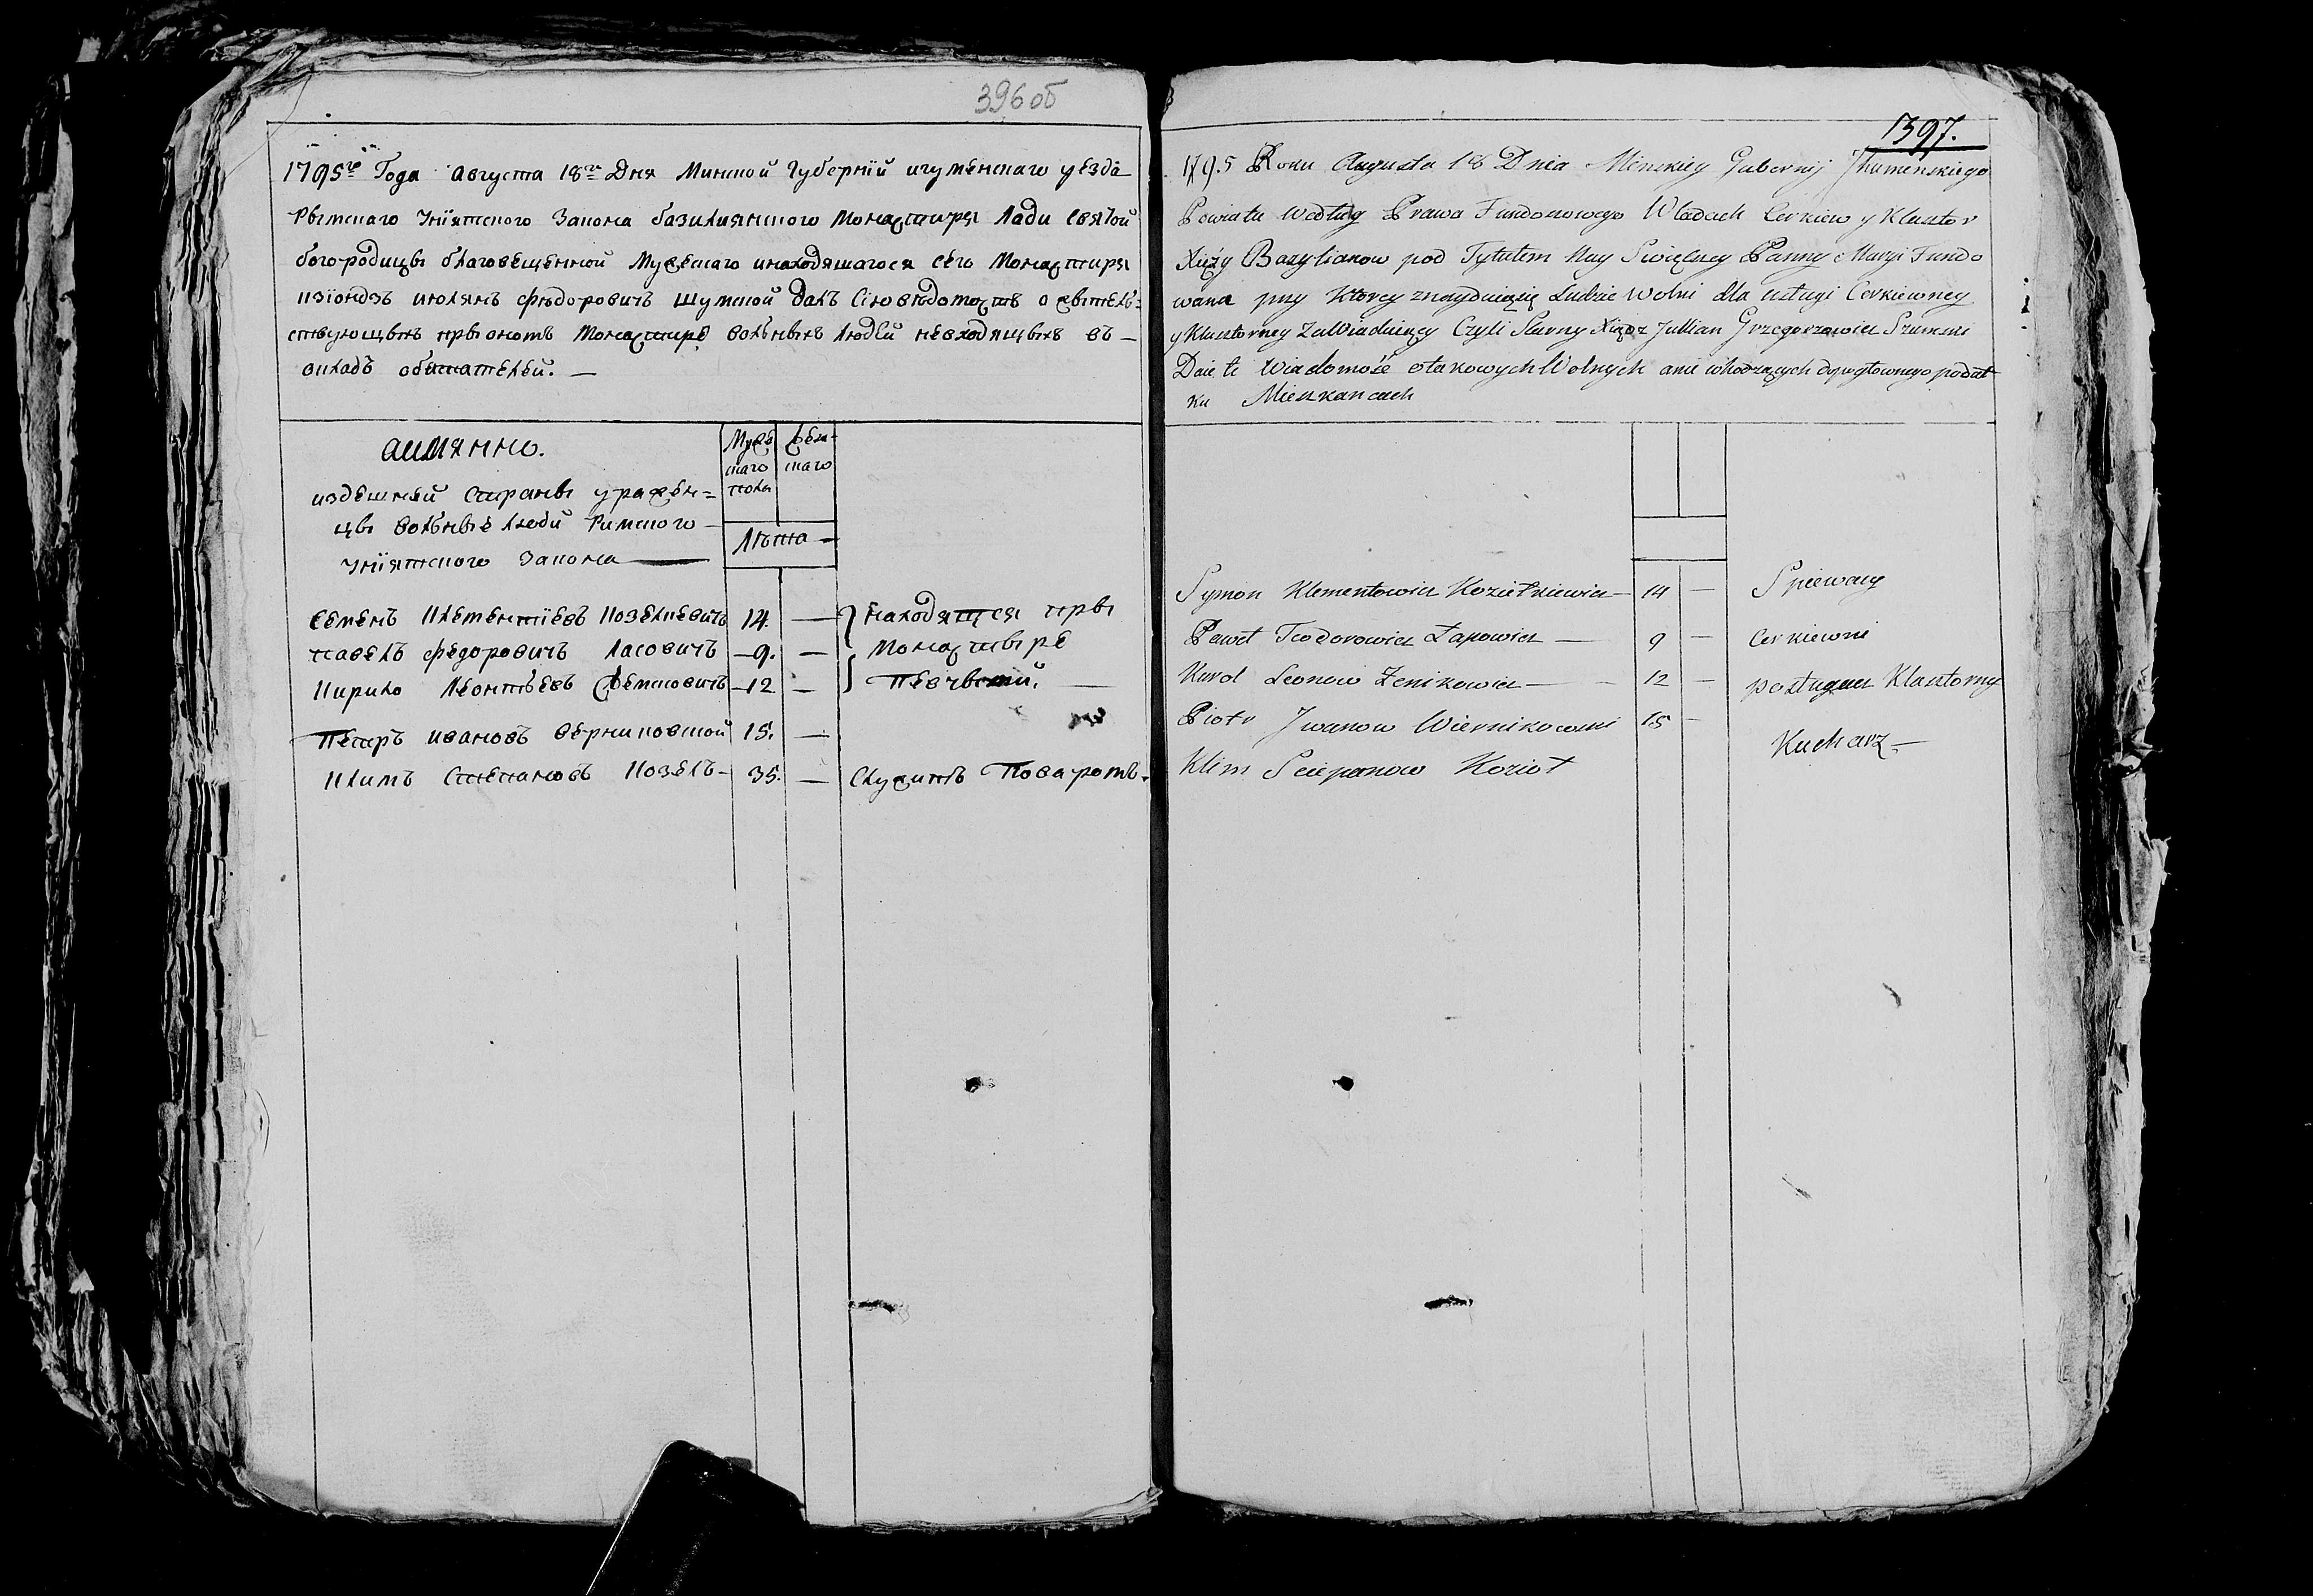 396об
1795го Года августа 18го Дня Минской Губернїй игуменскаго уезда
Рымскаго Унїятского Закона базилиянского монастыря Лади Святой
богородицы благовещенной Мужескаго инаходящагося сего Монастыря
ксїондзъ июлянъ фѣдоровичъ шумской далъ Сїю вѣдомость о жытель-
ствующыхъ пры ономъ Монастыре вольныхъ людей невходящыхъ въ —
окладъ обывателей. —
аимянно.
Муже
скаго
пола
Жен-
скаго
издешней страны уражен=
цы вольные люди Римского
Унїятского Закона
Лѣта —
Семенъ Клементїевъ Козелкевичъ 14. — находятся пры
павелъ федоровичъ Ласовичъ — 9. — Монастыре
Кирило Леонтьевъ Женковичъ — 12 — Певчыми. —
Петръ ивановъ Верниковской 15. —
Климъ Степановъ Козелъ - 35. — Служитъ Поваромъ.
1397.
1795 Roku Augusta 18 Dnia Minskiey Gubernij Jhumenskiego
Powiatu Według Prawa Fundonowego Władach Cerkiew y Klasztor
Xięży Bazylianow pod Tytułem Nay Swiętszey Panny Maryi Fundo
wana przy Ktorey znayduiąsię Ludzie Wolni dla usługi Cerkiewney
y Klasztorney zaWiaduiący Czyli Starszy Xiądz Jullian Grzegorzowicz Szumski
Daie te Wiadomość otakowych Wolnych anie whodzących dopogłownego podat
ku Mieszkancach
Symon Klementowicz Koziełkiewicz — 14 — Spiewacy
Paweł Teodorowicz Łasowicz — 9 — Cerkiewni
Karol Leonow Zenkowicz — 12 — posługacz Klasztorny
Piotr Jwanow Wiernikowski 15 —
Kucharz —
Klim Sciepanow Kozioł